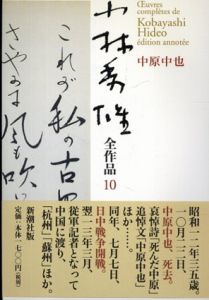 Œuvres
complètes de
Kobayashi
Hideo
édition annotée
中原中也
小林秀雄
全作品10
これが私の古
さやかに風も吹
昭和一二年、三五歳。
一〇月二二日、
中原中也、死去。
哀悼詩「死んだ中原」
追悼文「中原中也」
ほか……
同年、七月七日、
日中戦争開戦。
翌一三年三月、
従軍記者となって
中国に渡り、
「杭州」「蘇州」ほか。
新潮社版
定価:本体一、七〇〇円(税別)